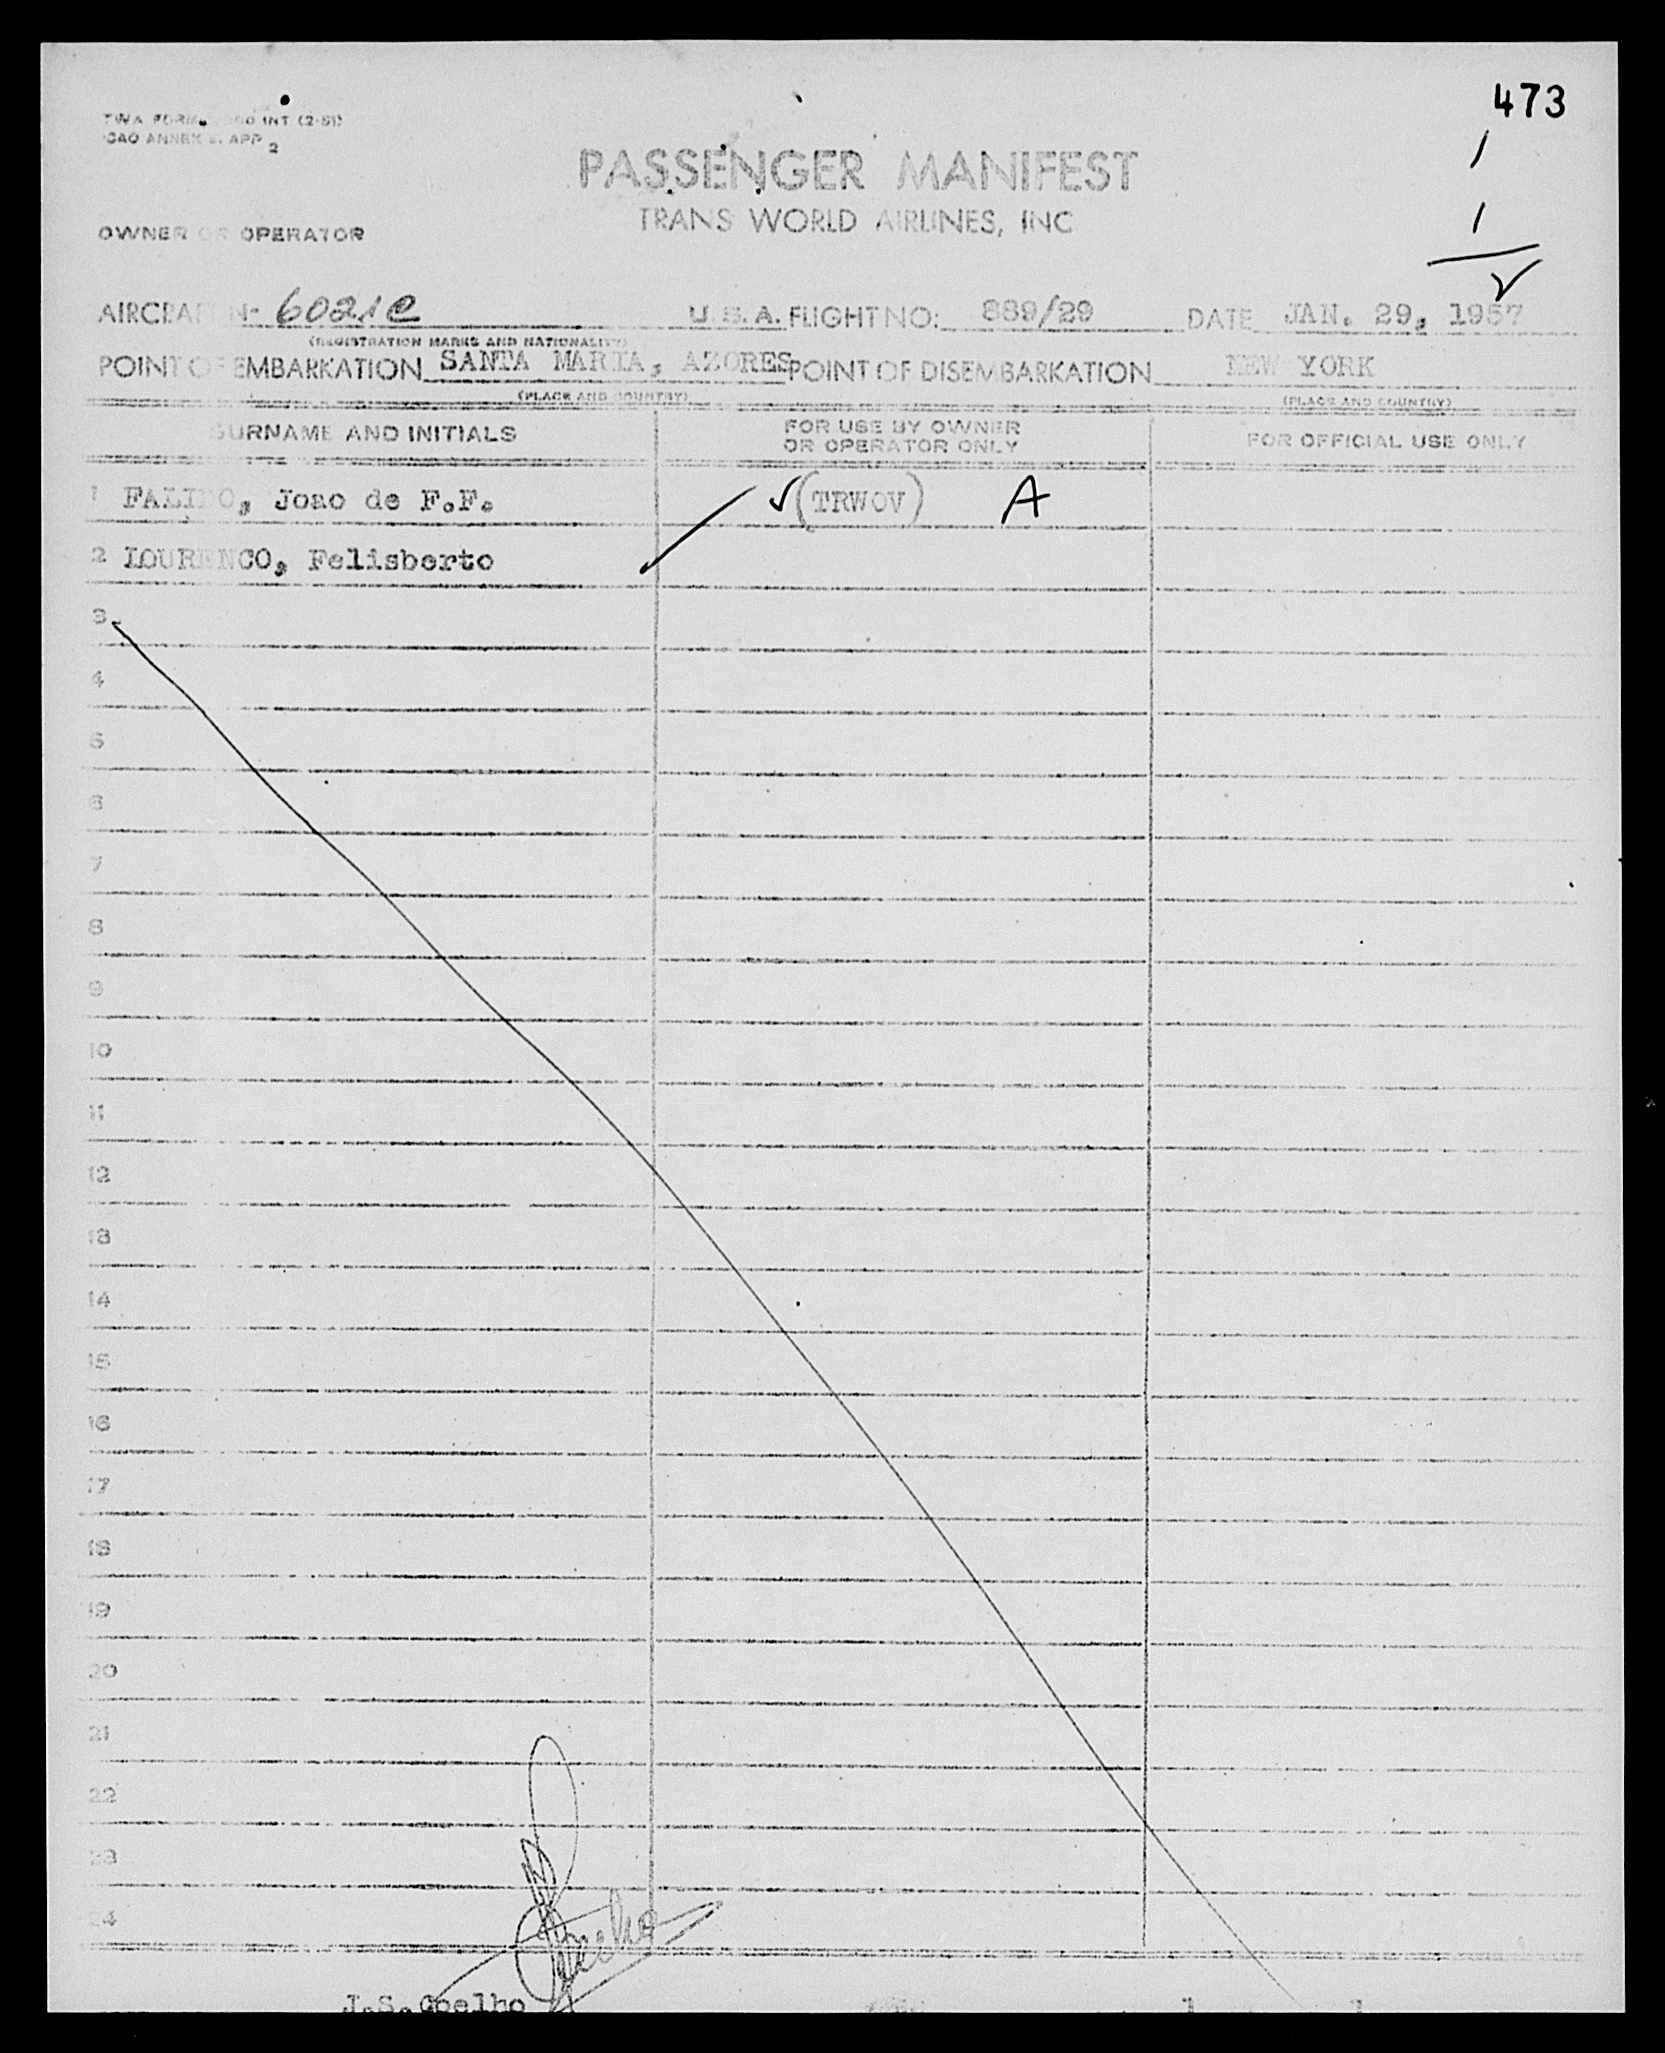 473
TWA FORM INT (2-51)
ICAO ANNEX 9. APP 2
PASSENGER MANIFEST
TRANS WORLD AIRLINES, INC
OWNER OR OPERATOR
1
1
AIRCRAFT N- 6021C U. S. A. FLIGHT NO: 889/29 DATE JAN. 29, 1957
(REGISTRATION MARKS AND NATIONALITY)
POINT OF EMBARKATION SANTA MARIA, AZORES POINT OF DISEMBARKATION NEW YORK
(PLACE AND COUNTRY) (PLACE AND COUNTRY)
SURNAME AND INITIALS FOR USE BY OWNER OR OPERATOR ONLY FOR OFFICIAL USE ONLY
1 Joao de F.F. (TRWOV) A
2 LOURENCO, Felisberto
3
4
5
6
7
8
9
10
11
12
13
14
15
16
17
18
19
20
21
22
23
24
J.S. Coelho 1 1